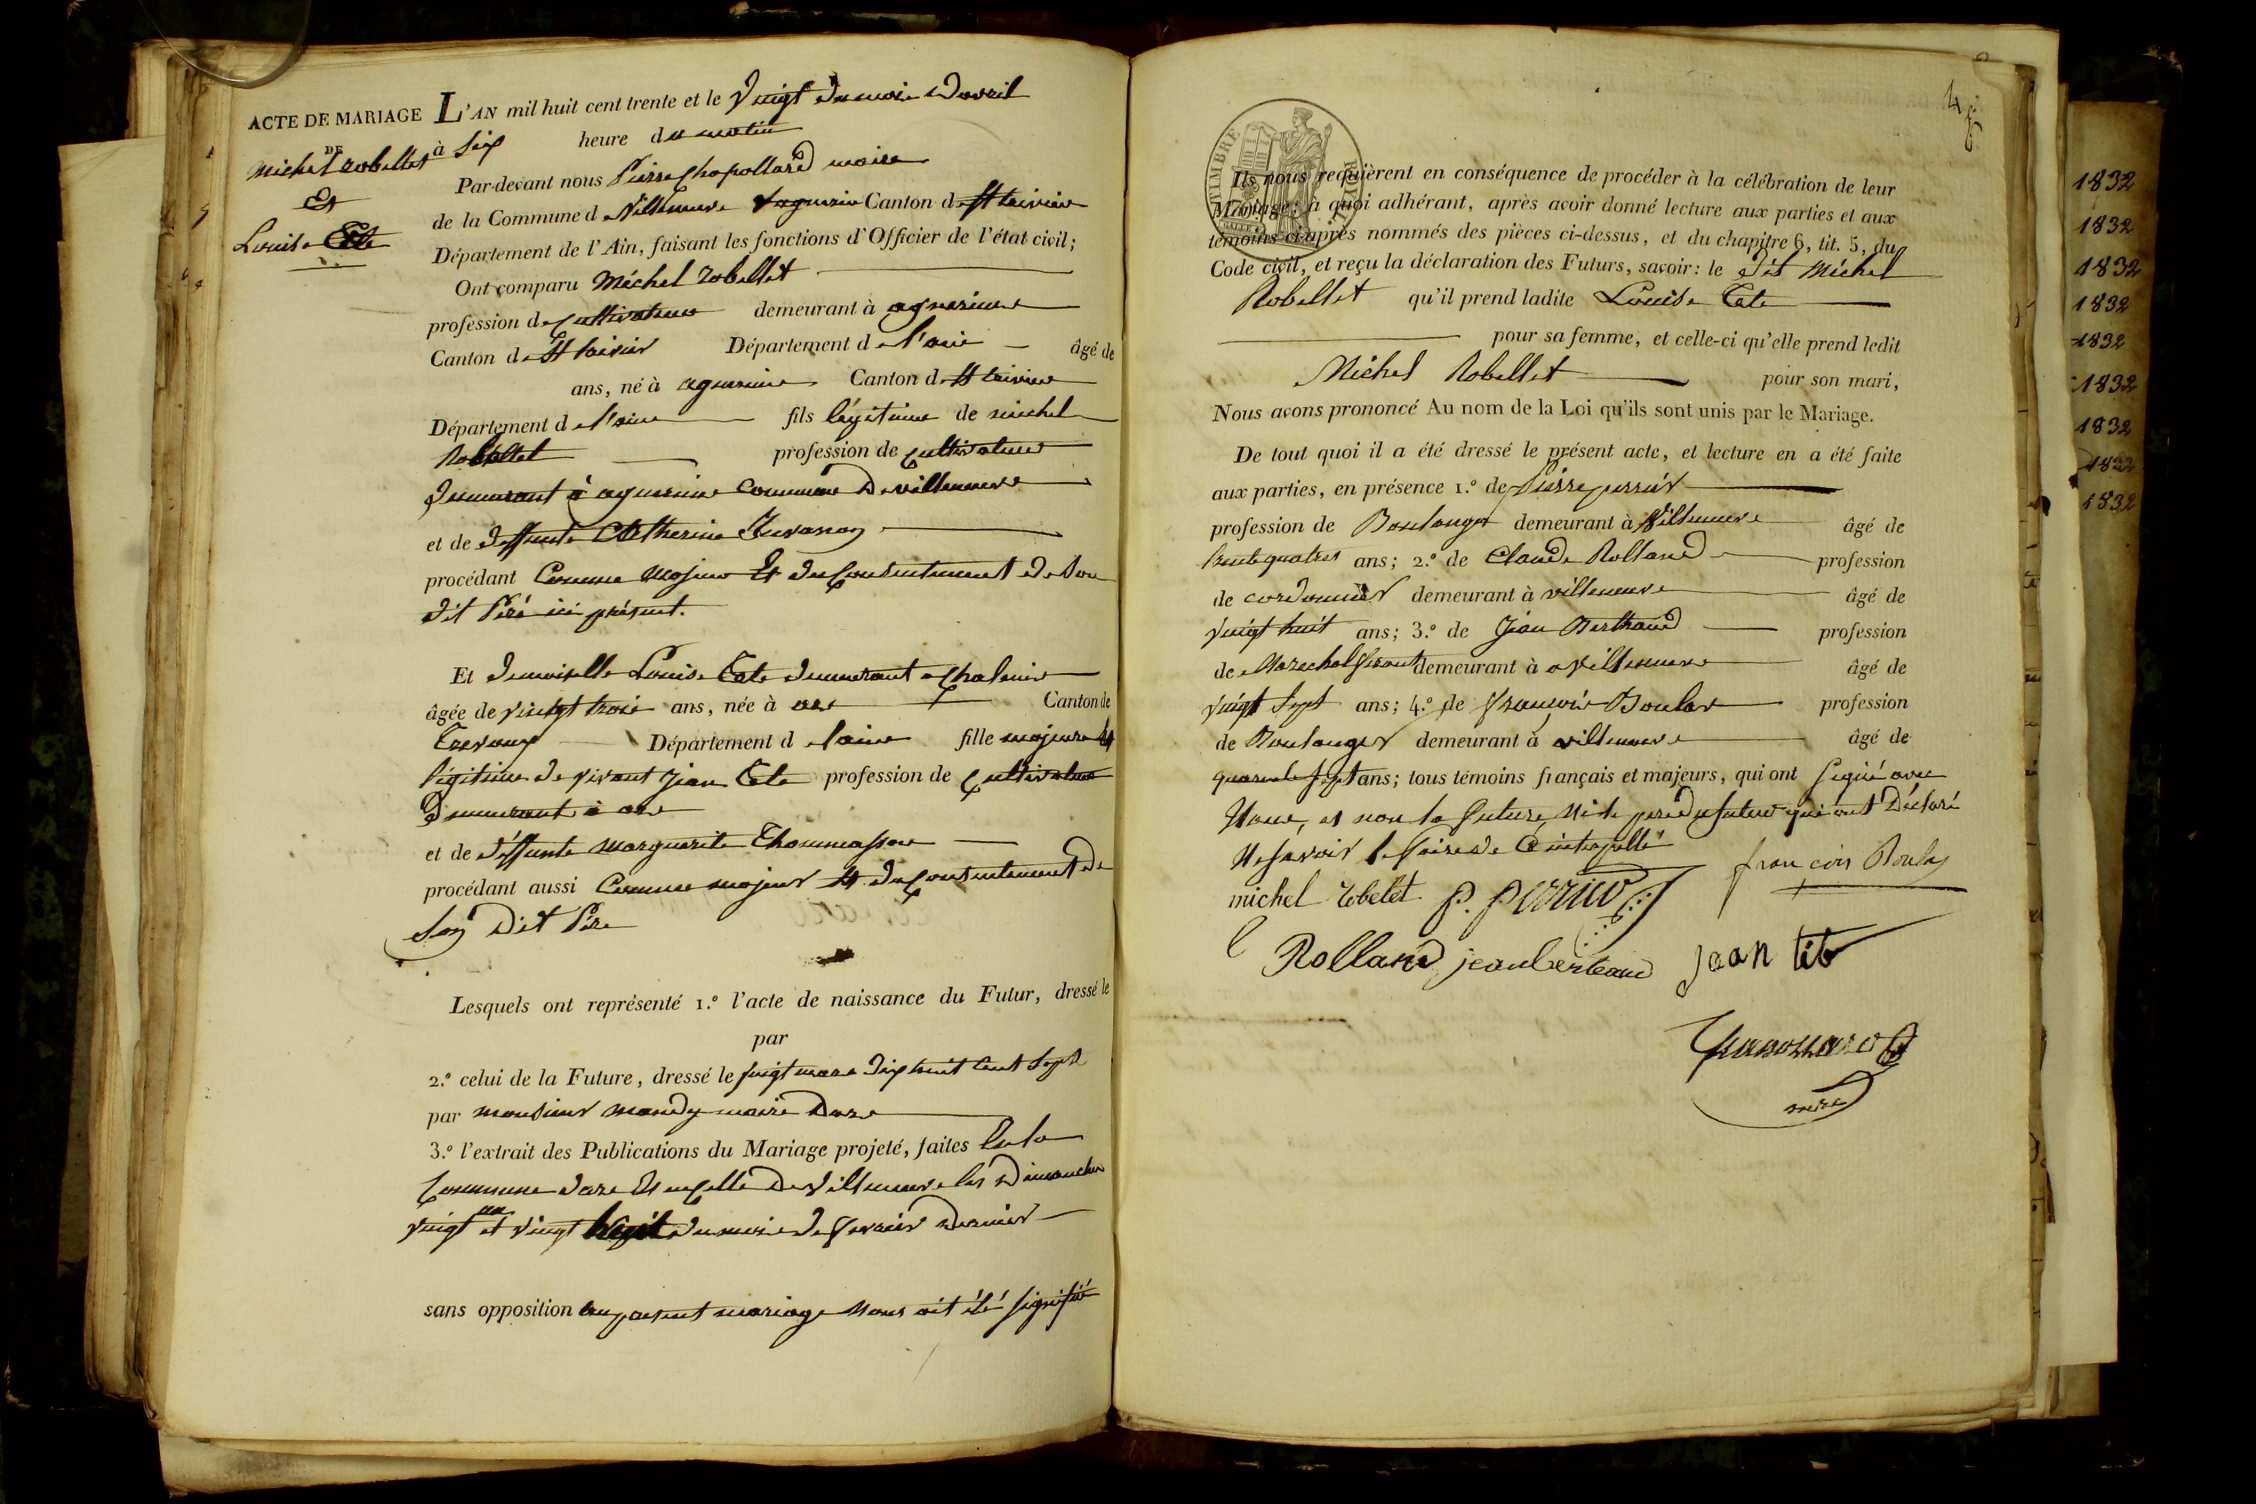 ACTE DE MARIAGE
DE
michel robellet
Et
Louise Tete
L'AN mil huit cent trente et le vingt du mois d'avril
à six heure du matin
Par-devant nous Pierre Chapollard maire
de la Commune d Villeneuve Canton d St trivier
Département de l'Ain, faisant les fonctions d'Officier de l'état civil;
Ont comparu Michel robellet
profession de cultivateur demeurant à agnereins
Canton de St trivier Département d e l'ain âgé de
ans, né à agnereins Canton de St trivier
Département d e l'ain fils légitime de michel
Robellet profession de cultivateur
demeurant à agnereins commune de villeneuve
et de deffunte Catherine
procédant Comme majeur Et du consentement de son
dit Père ici présent.
Et demoiselle Louise Tete demeurant a Chaleins
âgée de vingt trois ans, née à ars Canton de
Trevoux Département d e lain fille majeure Et
légitime de vivant Jean Tete profession de cultivateur
demeurant à ars
et de déffunte marguerite Thommasson
procédant aussi Comme majeur Et du consentement de
son dit Père
Lesquels ont représenté 1.º l'acte de naissance du Futur, dressé le
par
2.º celui de la Future, dressé le vingt mars dix huit cent sept
par monsieur mandy maire Dars
3.º l'extrait des Publications du Mariage projeté, faites En la
Commune dars Et en celle de villeneuve les Dimanches
vingt un et vingt huit du mois de fevrier dernier
sans opposition au présent mariage nous ait été signifié
TIMBRE ROYAL
Ils nous requièrent en conséquence de procéder à la célébration de leur
Mariage; à quoi adhérant, après avoir donné lecture aux parties et aux
témoins ci-après nommés des pièces ci-dessus, et du chapitre 6, tit. 5, du
Code civil, et reçu la déclaration des Futurs, savoir: le dit Michel
Robellet qu'il prend ladite Louise Tete
pour sa femme, et celle-ci qu'elle prend ledit
Michel Robellet pour son mari,
Nous avons prononcé Au nom de la Loi qu'ils sont unis par le Mariage.
De tout quoi il a été dressé le présent acte, et lecture en a été faite
aux parties, en présence 1.º de Pierre perrier
profession de Boulanger demeurant à Villeneuve âgé de
trente quatre ans; 2.º de Claude Rolland profession
de cordonnier demeurant à villeneuve âgé de
vingt huit ans; 3.º de Jean Berthaud profession
de Marechal ferant demeurant à villeneuve âgé de
vingt sept ans; 4.º de francois Boulas profession
de Boulanger demeurant à villeneuve âgé de
quarante sept ans; tous témoins français et majeurs, qui ont signé avec
Nous, et non la future ni le pere du futur qui ont Déclaré
Ne savoir le faire de ce interpellé
michel robelet P. Perrier francois Boulas
C Rolland jean berteaud jean tete
maire
1832
1832
1832
1832
1832
1832
1832
1832
1832